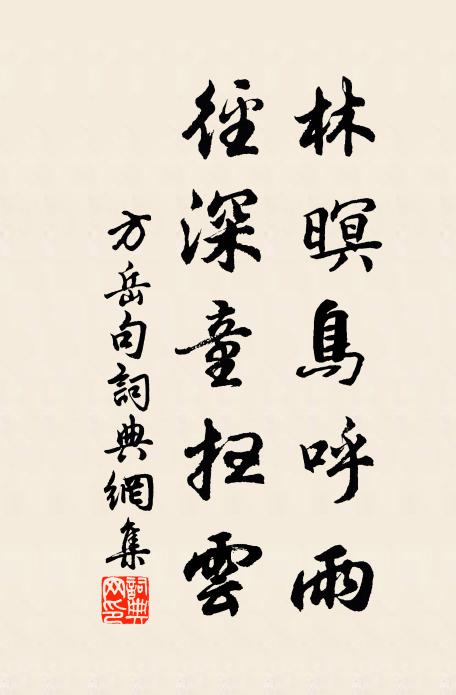 林暝鳥呼雨
徑深童掃雲
方岳句詞典網集
詞典网印